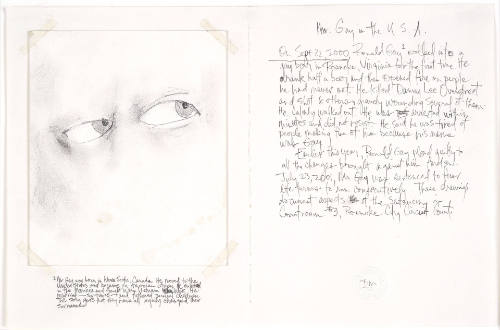 Mr. Gay in the U.S.A.
On Sept 22, 2000, Ronald Gay¹ walked into a
gay bar in Roanoke, Virginia for the first time. He
drank half a beer and then opened fire on people
he had never met. He killed Danny Lee Overstreet
and shot six others, gravely wounding several of them.
He calmly walked out. He was arrested within
minutes and did not resist. He said he was tired of
people making fun of him because his name
was Gay.
Earlier this year, Ronald Gay pled guilty to
all the charges brought against him. And on
July 23, 2001, Mr. Gay was sentenced to four
life terms to run consecutively. These drawings
document aspects of the sentencing at
Courtroom #3, Roanoke City Circuit Court.
¹ Mr Gay was born in Canada. He moved to the
United States and
in the Marines and Vietnam He
and
but they have all legally changed their
surname